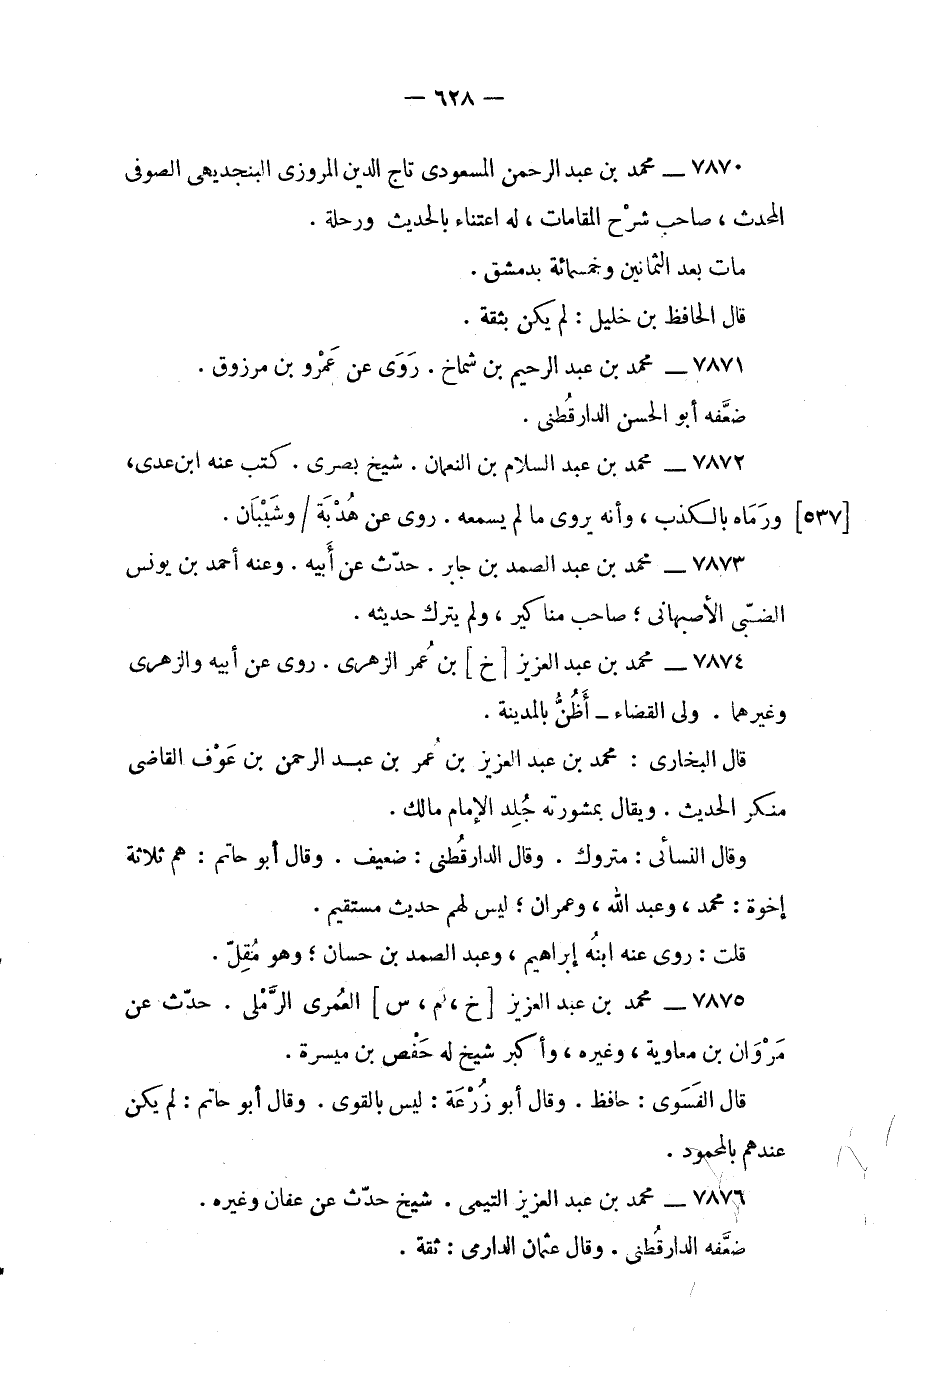 — ٦٢٨ —
٧٨٧٠ — محمد بن عبد الرحمن المسعودى تاج الدين المروزى البنجديهى الصوفى
المحدث ، صاحب شرْح المقامات ، له اعتناء بالحديث ورحلة .
مات بعد الثمانين وخمسمائة بدمشق .
قال الحافظ بن خليل : لم يكن بثقة .
٧٨٧١ — محمد بن عبد الرحيم بن شماخ . رَوَى عن عَمْرو بن مرزوق .
ضعَّفه أبو الحسن الدارقُطنى .
٧٨٧٢ — محمد بن عبد السلام بن النعمان . شيخ بصرى . كتب عنه ابن عدى،
[٥٣٧] ورَمَاه بالكذب ، وأنه يروى ما لم يسمعه . روى عن هُدْبَة / وشَيْبَان .
٧٨٧٣ — محمد بن عبد الصمد بن جابر . حدّث عن أَبيه . وعنه أحمد بن يونس
الضبّى الأصبهانى ؛ صاحب مناكير ، ولم يترك حديثه .
٧٨٧٤ — محمد بن عبد العزيز [ خ ] بن عُمر الزهرى . روى عن أبيه والزهرى
وغيرهما . ولى القضاء - أَظُنُّ بالمدينة .
قال البخارى : محمد بن عبد العزيز بن عُمر بن عبد الرحمن بن عَوْف القاضى
منكر الحديث . ويقال بمشورته جُلِد الإمام مالك .
وقال النسائى : متروك . وقال الدارقُطنى : ضعيف . وقال أبو حاتم : هم ثلاثة
إخوة : محمد ، وعبد الله ، وعمران ؛ ليس لهم حديث مستقيم .
قلت : روى عنه ابنُه إبراهيم ، وعبد الصمد بن حسان ؛ وهو مُقِلّ .
٧٨٧٥ — محمد بن عبد العزيز [ خ ، م ، س ] العُمرى الرَّمْلى . حدّث عن
مَرْوَان بن معاوية ، وغيره ، وأكبر شيخ له حَفْص بن ميسرة .
قال الفَسَوى : حافظ . وقال أبو زُرْعَة : ليس بالقوى . وقال أبو حاتم : لم يكن
عندهم بالمحمود .
٧٨٧٦ — محمد بن عبد العزيز التيمى . شيخ حدّث عن عفان وغيره .
ضعَّفه الدارقُطنى . وقال عثمان الدارمى : ثقة .